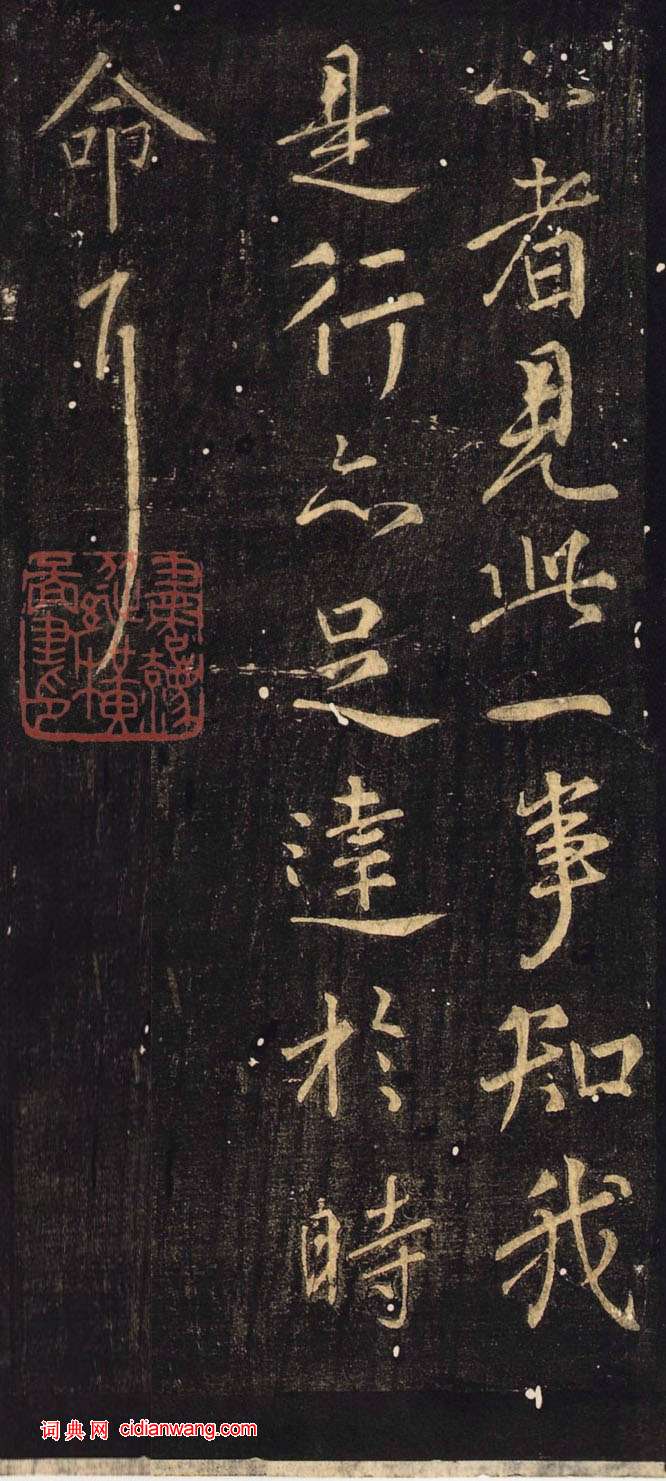 心者見此一事知我
是行亦足達於時
命耳
词典网 cidianwang.com